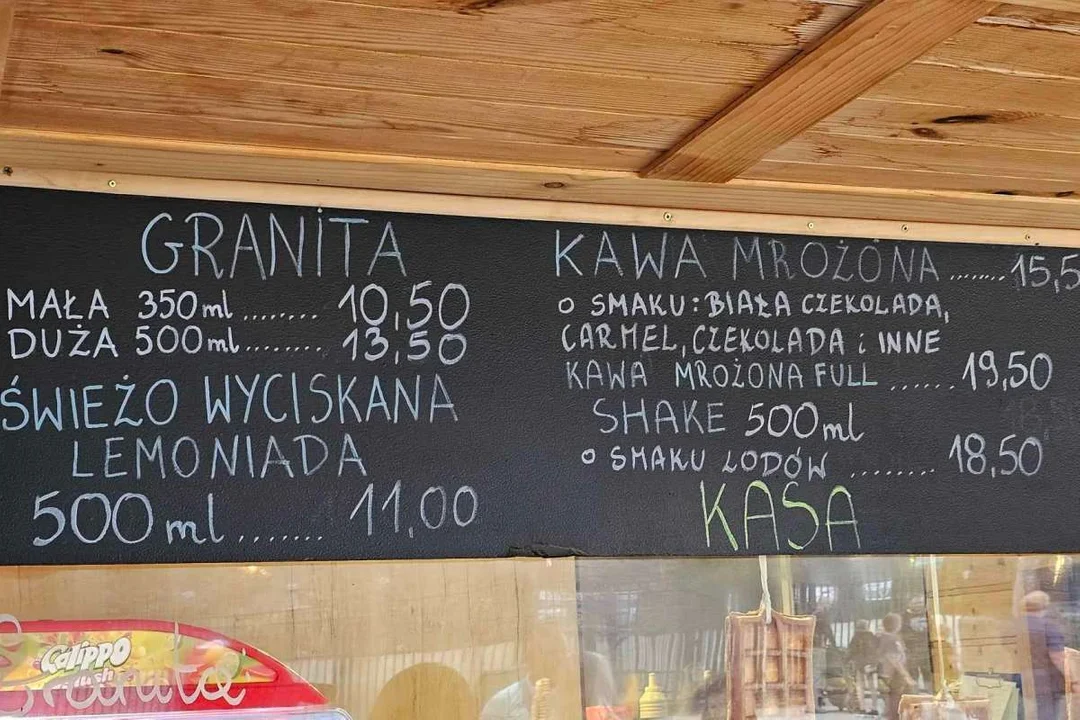 GRANITA
MAŁA 350ml ........ 10,50
DUŻA 500ml ........ 13,50
ŚWIEŻO WYCISKANA
LEMONIADA
500ml ....... 11,00
KAWA MROŻONA ....... 15,5
O SMAKU: BIAŁA CZEKOLADA,
CARMEL, CZEKOLADA i INNE
KAWA MROŻONA FULL ...... 19,50
SHAKE 500ml
O SMAKU LODÓW ........ 18,50
KASA
Calippo